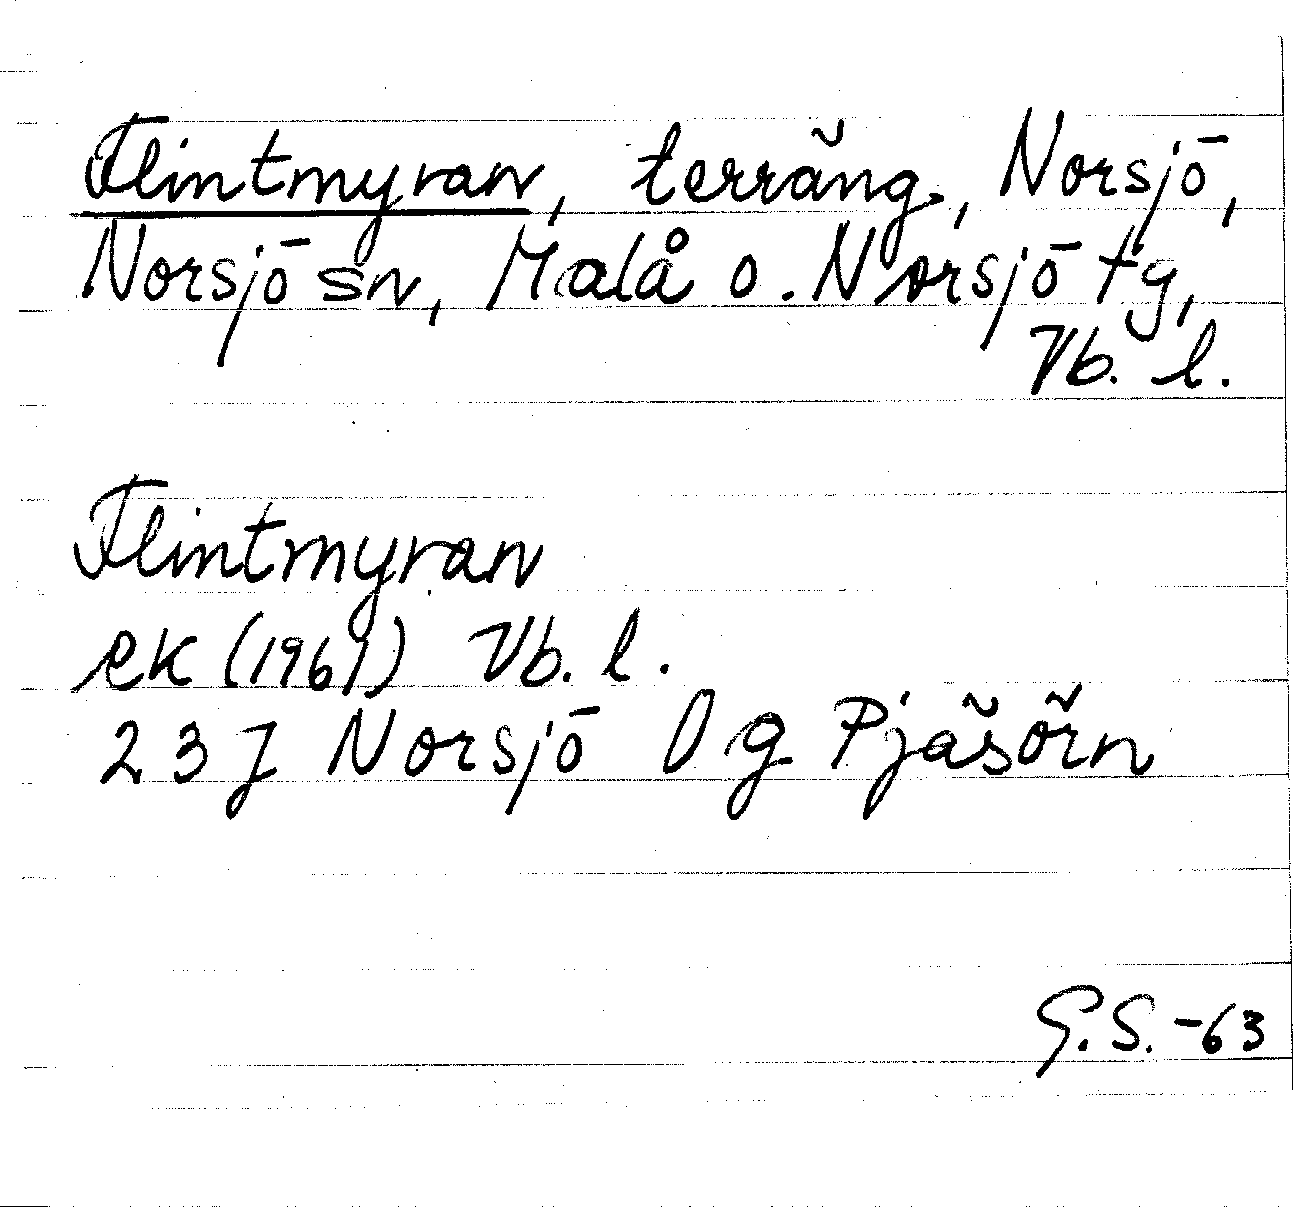 Flintmyran, terräng, Norsjö,
Norsjö sn, Malå o. Norsjö tg,
Vb. l.
Flintmyran
ek (1961) Vb. l.
23J Norsjö 0g Pjäsörn
G.S.-63